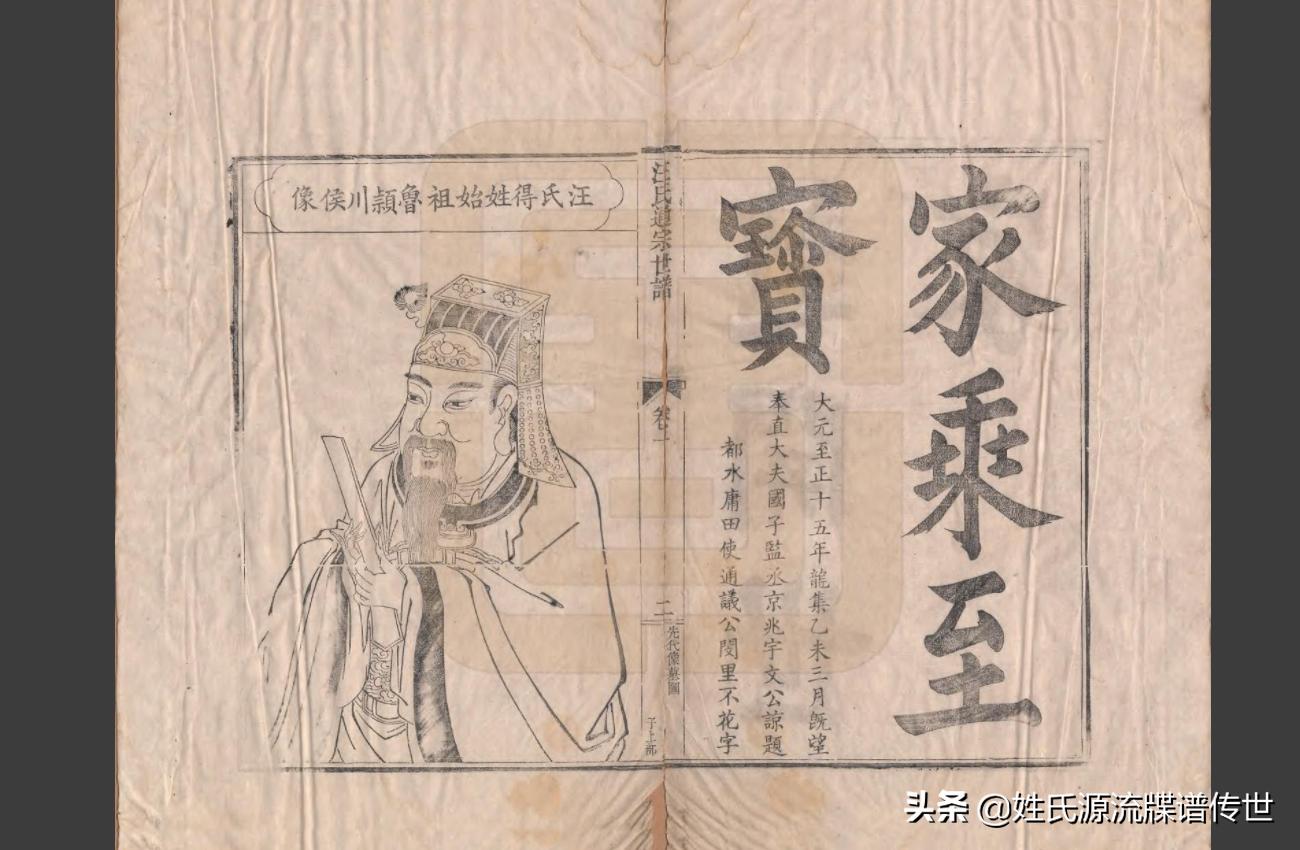 家乘至
寳
大元至正十五年龍集乙未三月旣望
奉直大夫國子監丞京兆宇文公諒題
都水庸田使通議公閔里不花字
汪氏通宗世譜
卷一
二
先代像墓圖
子上部
汪氏得姓始祖魯潁川侯像
头条 @姓氏源流牒谱传世